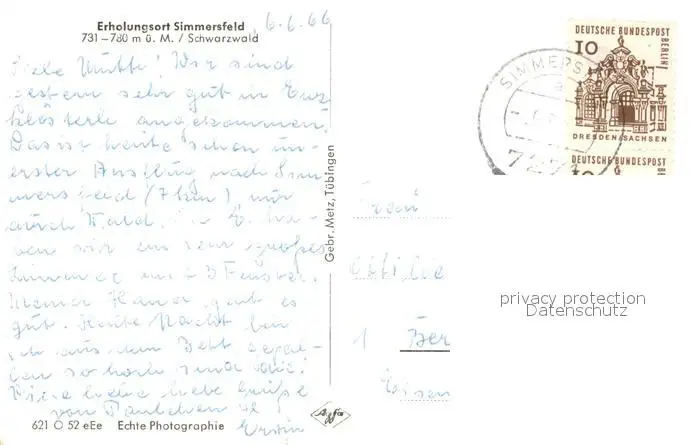 Erholungsort Simmersfeld
731–780 m ü. M. / Schwarzwald
6.6.66
Liebe Mutti! Wir sind
gestern sehr gut in Enz-
klösterle angekommen.
Das ist heute schon un-
erster Ausflug nach Sim-
mersfeld (7 km), nur
durch Wald. In E. ha-
ben wir ein sehr großes
Zimmer mit 3 Fenster.
Meiner Hand geht es
gut. Heute Nacht bin
ich aus dem Bett gefal-
len so hoch sind die!
Viele liebe liebe Grüße
von
Erwin
621 O 52 eEe Echte Photographie
Gebr. Metz, Tübingen
Agfa
SIMMERS
727
DEUTSCHE BUNDESPOST
BERLIN
10
DRESDEN/SACHSEN
DEUTSCHE BUNDESPOST
10
Frau
Ottilie
1 Ber
privacy protection
Datenschutz